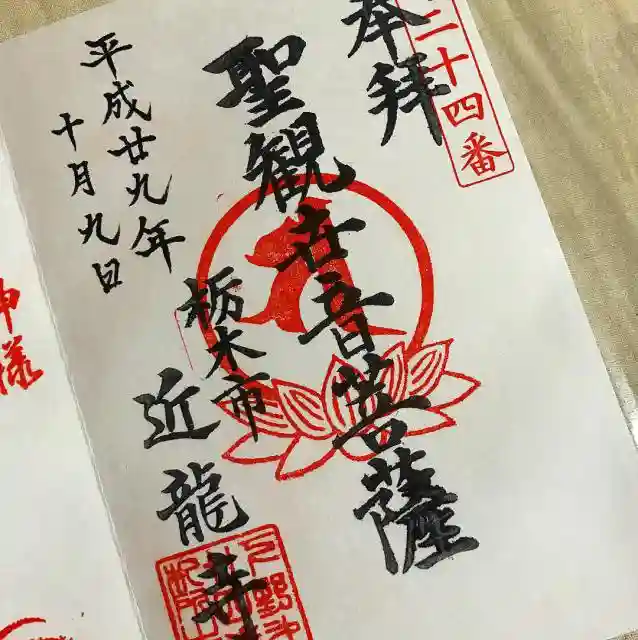 二十四番
奉拝
聖観在音菩薩
栃木市
近龍寺
平成廿九年
十月九日
神様